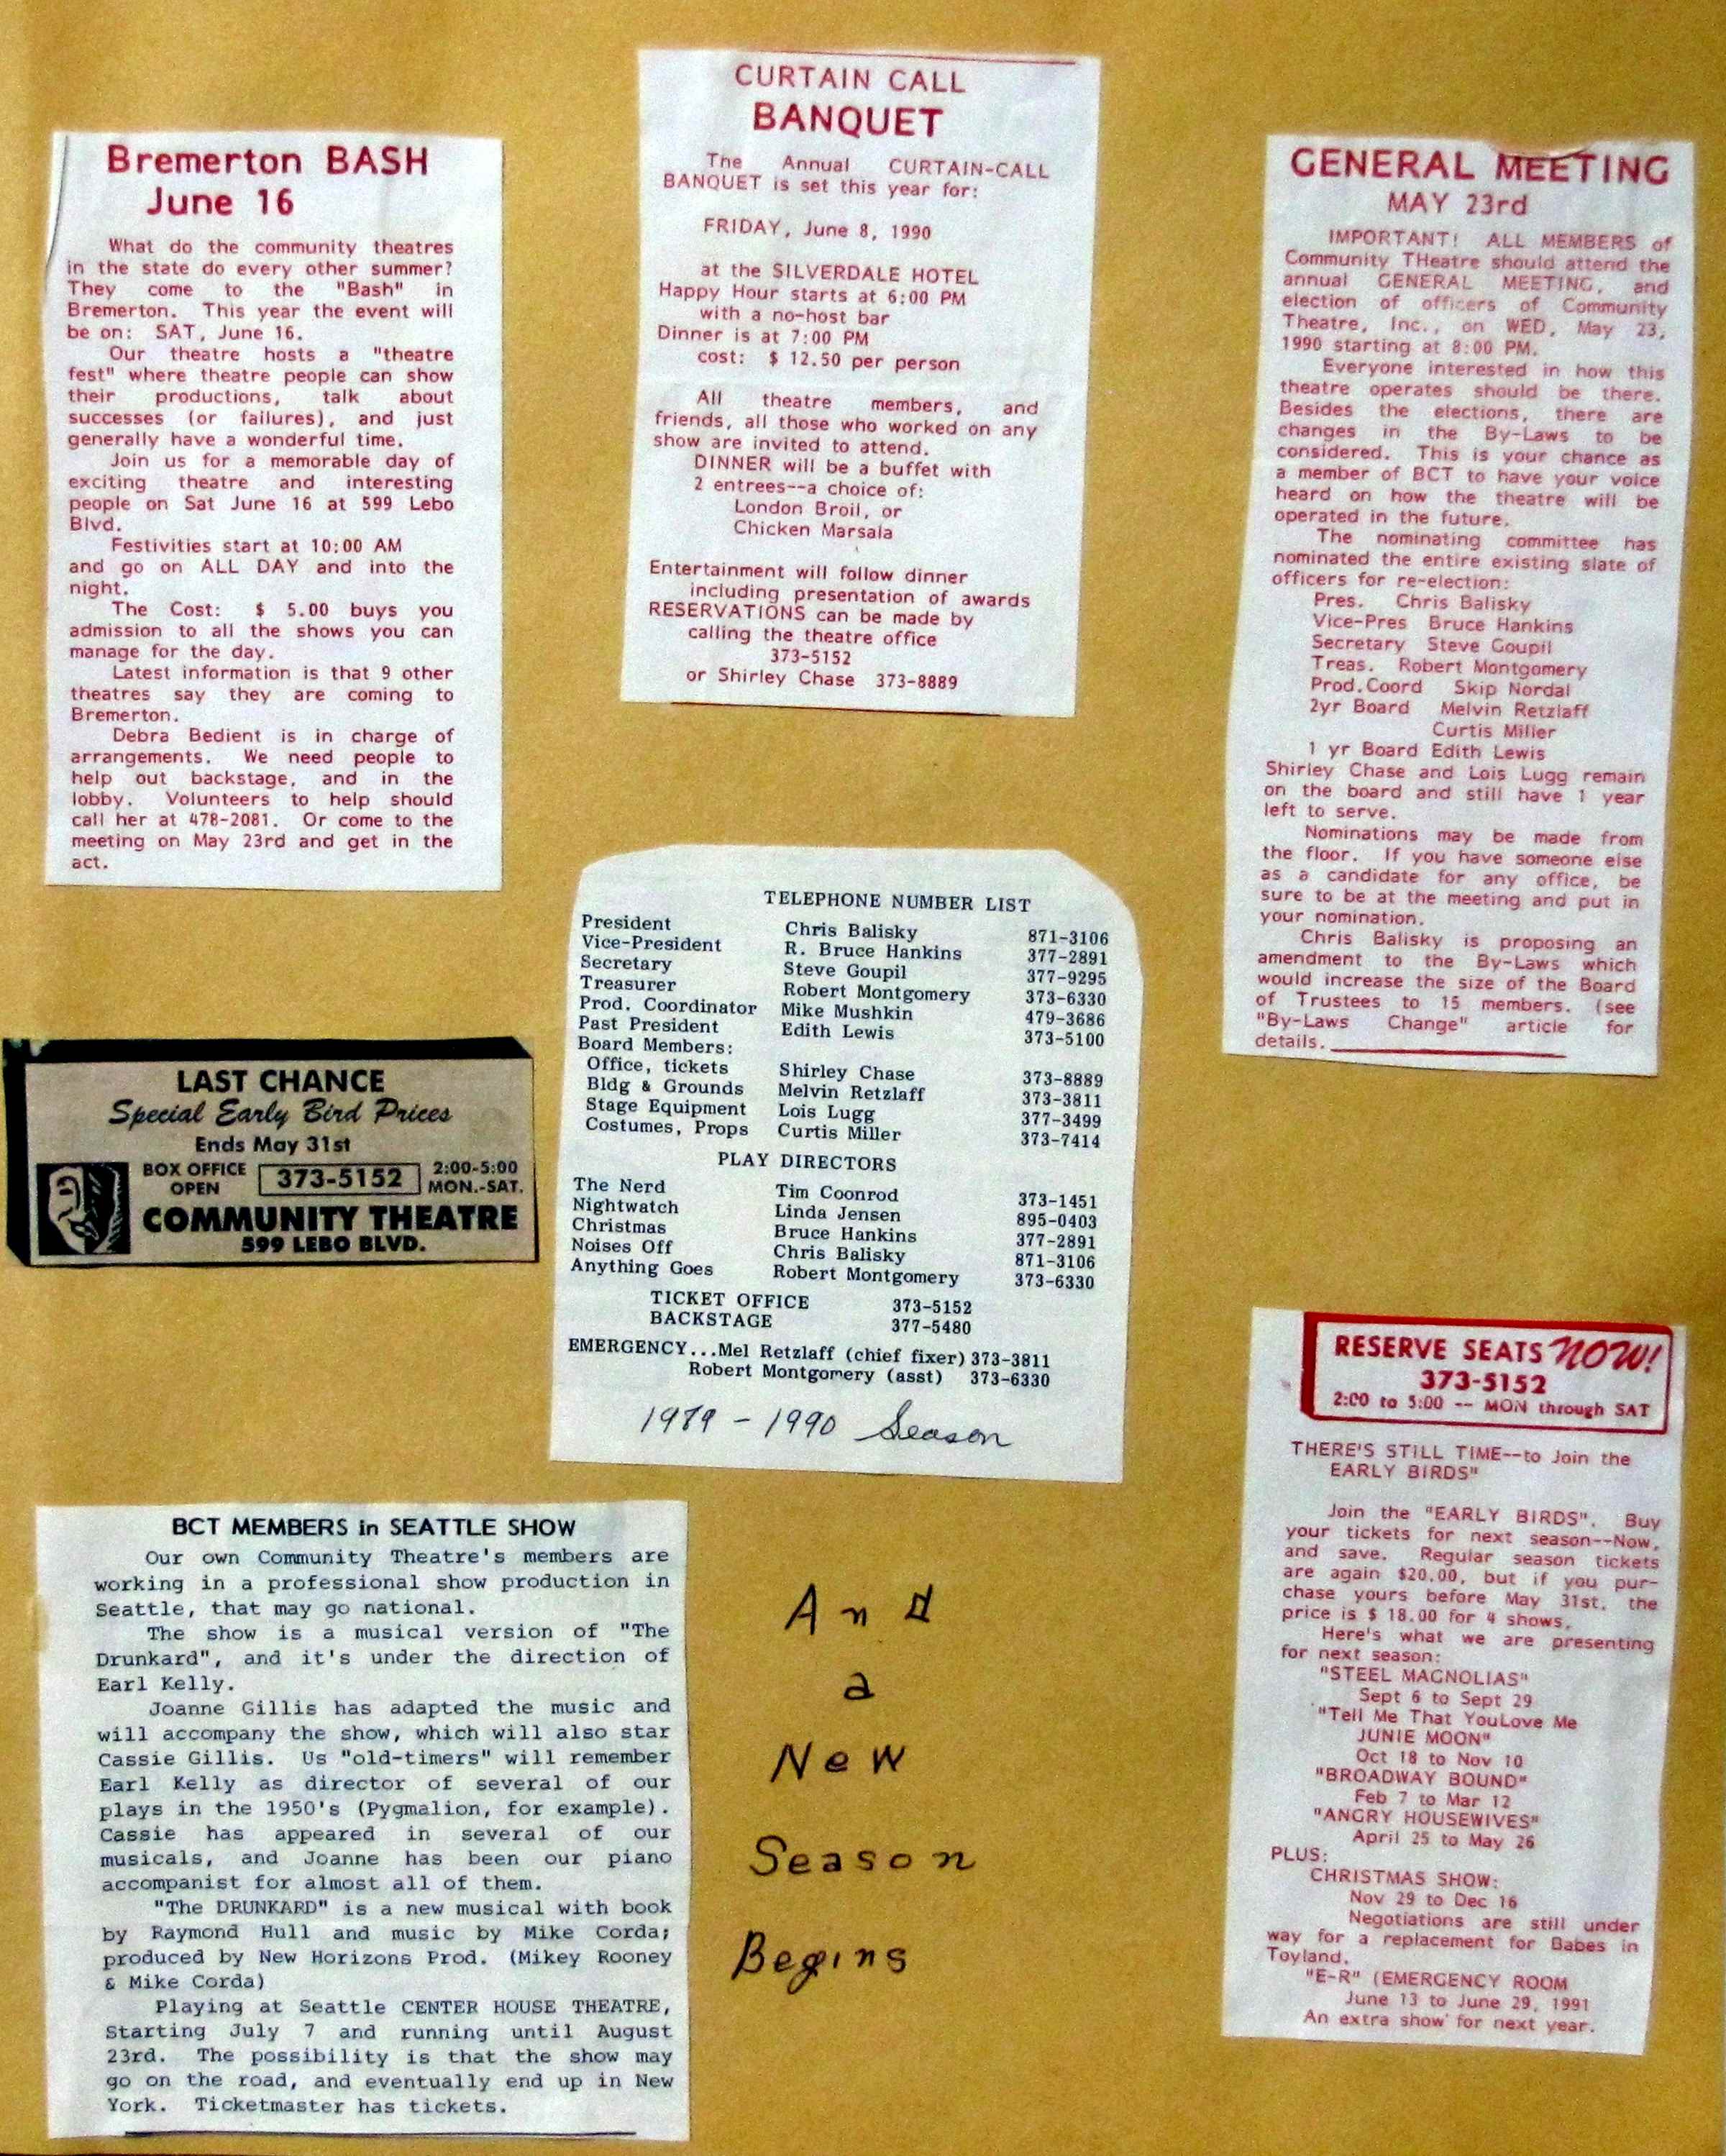 Bremerton BASH
June 16
What do the community theatres
in the state do every other summer?
They come to the "Bash" in
Bremerton. This year the event will
be on: SAT, June 16.
Our theatre hosts a "theatre
fest" where theatre people can show
their productions, talk about
successes (or failures), and just
generally have a wonderful time.
Join us for a memorable day of
exciting theatre and interesting
people on Sat June 16 at 599 Lebo
Blvd.
Festivities start at 10:00 AM
and go on ALL DAY and into the
night.
The Cost: $ 5.00 buys you
admission to all the shows you can
manage for the day.
Latest information is that 9 other
theatres say they are coming to
Bremerton.
Debra Bedient is in charge of
arrangements. We need people to
help out backstage, and in the
lobby. Volunteers to help should
call her at 478-2081. Or come to the
meeting on May 23rd and get in the
act.
CURTAIN CALL
BANQUET
The Annual CURTAIN-CALL
BANQUET is set this year for:
FRIDAY, June 8, 1990
at the SILVERDALE HOTEL
Happy Hour starts at 6:00 PM
with a no-host bar
Dinner is at 7:00 PM
cost: $ 12.50 per person
All theatre members, and
friends, all those who worked on any
show are invited to attend.
DINNER will be a buffet with
2 entrees--a choice of:
London Broil, or
Chicken Marsala
Entertainment will follow dinner
including presentation of awards
RESERVATIONS can be made by
calling the theatre office
373-5152
or Shirley Chase 373-8889
GENERAL MEETING
MAY 23rd
IMPORTANT! ALL MEMBERS of
Community THeatre should attend the
annual GENERAL MEETING, and
election of officers of Community
Theatre, Inc., on WED, May 23,
1990 starting at 8:00 PM.
Everyone interested in how this
theatre operates should be there.
Besides the elections, there are
changes in the By-Laws to be
considered. This is your chance as
a member of BCT to have your voice
heard on how the theatre will be
operated in the future.
The nominating committee has
nominated the entire existing slate of
officers for re-election:
Pres. Chris Balisky
Vice-Pres Bruce Hankins
Secretary Steve Goupil
Treas. Robert Montgomery
Prod.Coord Skip Nordal
2yr Board Melvin Retzlaff
Curtis Miller
1 yr Board Edith Lewis
Shirley Chase and Lois Lugg remain
on the board and still have 1 year
left to serve.
Nominations may be made from
the floor. If you have someone else
as a candidate for any office, be
sure to be at the meeting and put in
your nomination.
Chris Balisky is proposing an
amendment to the By-Laws which
would increase the size of the Board
of Trustees to 15 members. (see
"By-Laws Change" article for
details.
TELEPHONE NUMBER LIST
President Chris Balisky 871-3106
Vice-President R. Bruce Hankins 377-2891
Secretary Steve Goupil 377-9295
Treasurer Robert Montgomery 373-6330
Prod. Coordinator Mike Mushkin 479-3686
Past President Edith Lewis 373-5100
Board Members:
Office, tickets Shirley Chase 373-8889
Bldg & Grounds Melvin Retzlaff 373-3811
Stage Equipment Lois Lugg 377-3499
Costumes, Props Curtis Miller 373-7414
PLAY DIRECTORS
The Nerd Tim Coonrod 373-1451
Nightwatch Linda Jensen 895-0403
Christmas Bruce Hankins 377-2891
Noises Off Chris Balisky 871-3106
Anything Goes Robert Montgomery 373-6330
TICKET OFFICE 373-5152
BACKSTAGE 377-5480
EMERGENCY...Mel Retzlaff (chief fixer) 373-3811
Robert Montgomery (asst) 373-6330
1989 - 1990 Season
LAST CHANCE
Special Early Bird Prices
Ends May 31st
BOX OFFICE OPEN 373-5152 2:00-5:00 MON.-SAT.
COMMUNITY THEATRE
599 LEBO BLVD.
BCT MEMBERS in SEATTLE SHOW
Our own Community Theatre's members are
working in a professional show production in
Seattle, that may go national.
The show is a musical version of "The
Drunkard", and it's under the direction of
Earl Kelly.
Joanne Gillis has adapted the music and
will accompany the show, which will also star
Cassie Gillis. Us "old-timers" will remember
Earl Kelly as director of several of our
plays in the 1950's (Pygmalion, for example).
Cassie has appeared in several of our
musicals, and Joanne has been our piano
accompanist for almost all of them.
"The DRUNKARD" is a new musical with book
by Raymond Hull and music by Mike Corda;
produced by New Horizons Prod. (Mikey Rooney
& Mike Corda)
Playing at Seattle CENTER HOUSE THEATRE,
Starting July 7 and running until August
23rd. The possibility is that the show may
go on the road, and eventually end up in New
York. Ticketmaster has tickets.
And
a
New
Season
Begins
RESERVE SEATS NOW!
373-5152
2:00 to 5:00 -- MON through SAT
THERE'S STILL TIME--to Join the
EARLY BIRDS"
Join the "EARLY BIRDS". Buy
your tickets for next season--Now,
and save. Regular season tickets
are again $20.00, but if you pur-
chase yours before May 31st, the
price is $ 18.00 for 4 shows.
Here's what we are presenting
for next season:
"STEEL MAGNOLIAS"
Sept 6 to Sept 29
"Tell Me That YouLove Me
JUNIE MOON"
Oct 18 to Nov 10
"BROADWAY BOUND"
Feb 7 to Mar 12
"ANGRY HOUSEWIVES"
April 25 to May 26
PLUS:
CHRISTMAS SHOW:
Nov 29 to Dec 16
Negotiations are still under
way for a replacement for Babes in
Toyland.
"E-R" (EMERGENCY ROOM
June 13 to June 29, 1991
An extra show for next year.